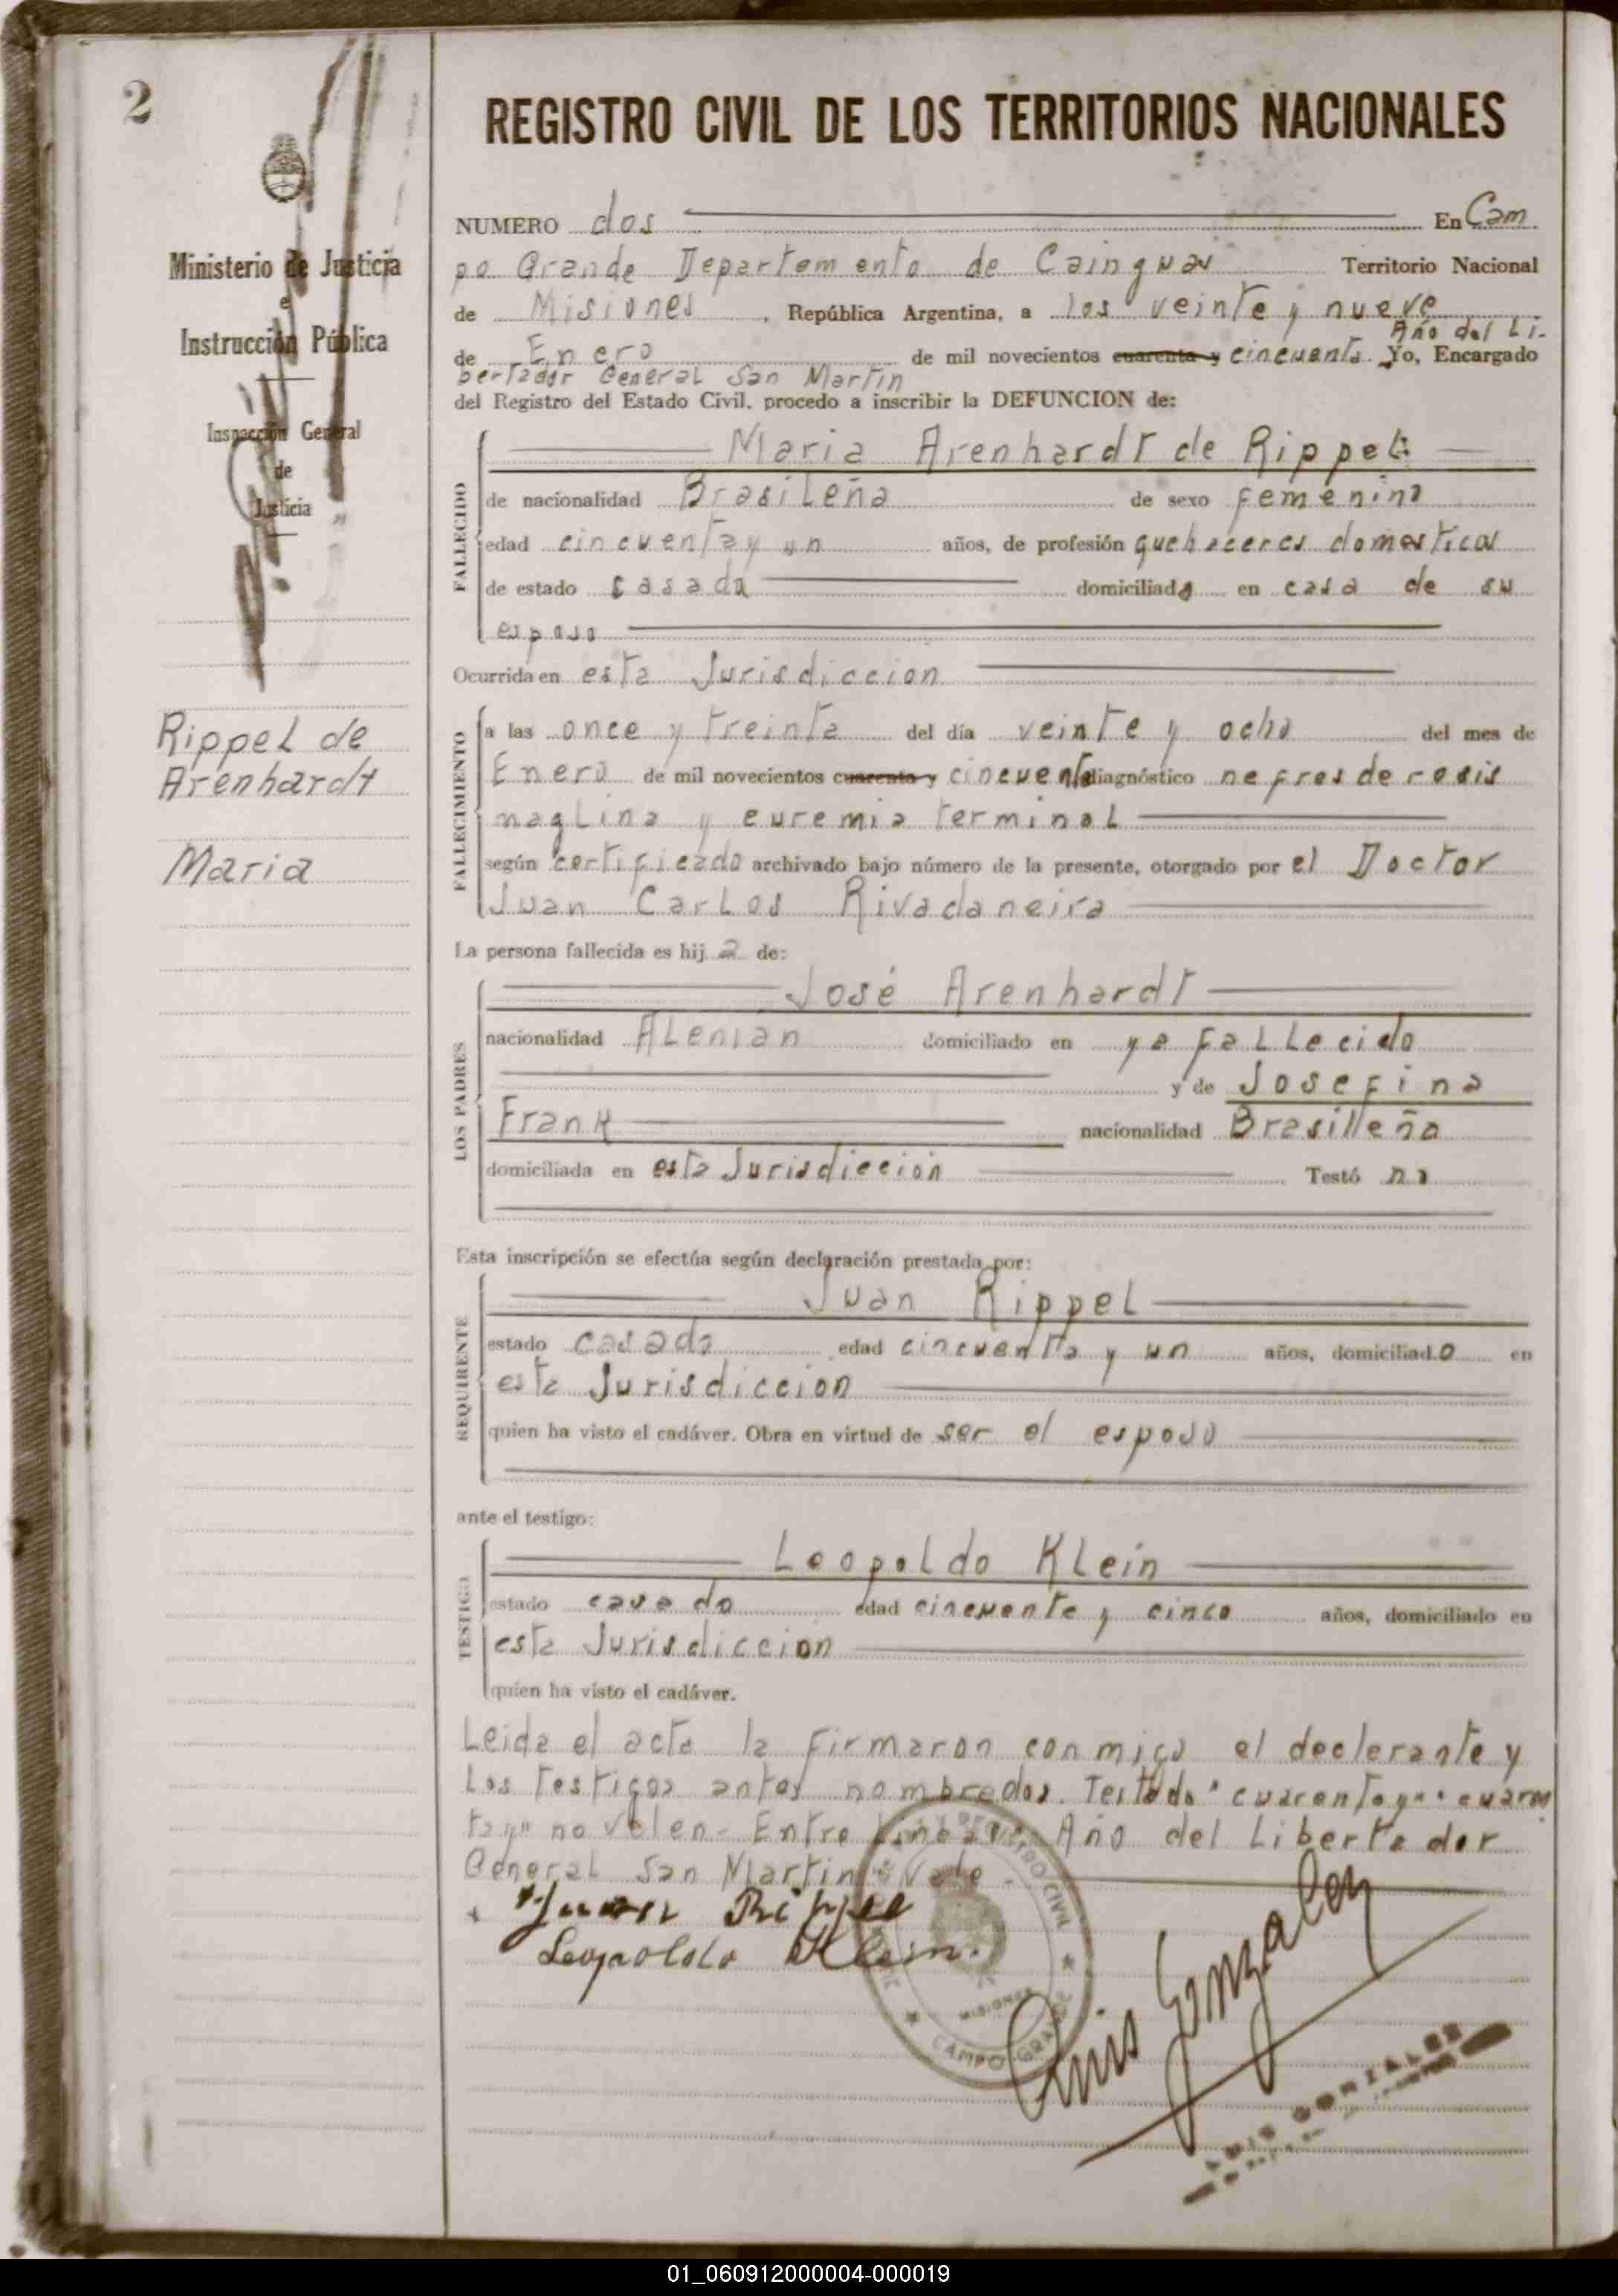 2
REGISTRO CIVIL DE LOS TERRITORIOS NACIONALES
Ministerio de Justicia
e
Instrucción Pública
Inspección General
de
Justicia
Rippel de
Arenhardt
Maria
NUMERO dos En Cam
po Grande Departamento de Cainguas Territorio Nacional
de Misiones, República Argentina, a los veinte y nueve
Año del Li-
de Enero de mil novecientos cuarenta y cincuenta. Yo, Encargado
bertador General San Martin
del Registro del Estado Civil, procedo a inscribir la DEFUNCION de:
FALLECIDO
Maria Arenhardt de Rippel
de nacionalidad Brasileña de sexo femenino
edad cincuenta y un años, de profesión quehaceres domesticos
de estado casada domiciliada en casa de su
esposo
Ocurrida en esta Jurisdiccion
FALLECIMIENTO
a las once y treinta del día veinte y ocho del mes de
Enero de mil novecientos cuarenta y cincuenta diagnóstico nefrosderosis
maglina y euremia terminal
según certificado archivado bajo número de la presente, otorgado por el Doctor
Juan Carlos Rivadaneira
La persona fallecida es hija de:
LOS PADRES
José Arenhardt
nacionalidad Aleman domiciliado en ya fallecido
y de Josefina
Frank nacionalidad Brasilleña
domiciliada en esta Jurisdiccion Testó no
Esta inscripción se efectúa según declaración prestada por:
REQUIRENTE
Juan Rippel
estado casado edad cincuenta y un años, domiciliado en
esta Jurisdiccion
quien ha visto el cadáver. Obra en virtud de ser el esposo
ante el testigo:
TESTIGO
Leopoldo Klein
estado casado edad cincuenta y cinco años, domiciliado en
esta Jurisdiccion
quien ha visto el cadáver.
Leida el acta la firmaron conmigo el declarante y
los testigos antes nombrados. Testado "cuarenta y" "cuaren
ta y" no valen- Entre lineas: Año del Libertador
General San Martin: Vale-
Juan Rippel
Leopoldo Klein.
REGISTRO CIVIL
MISIONES
CAMPO GRANDE
Luis Gonzalez
LUIS GONZALEZ
01_060912000004-000019